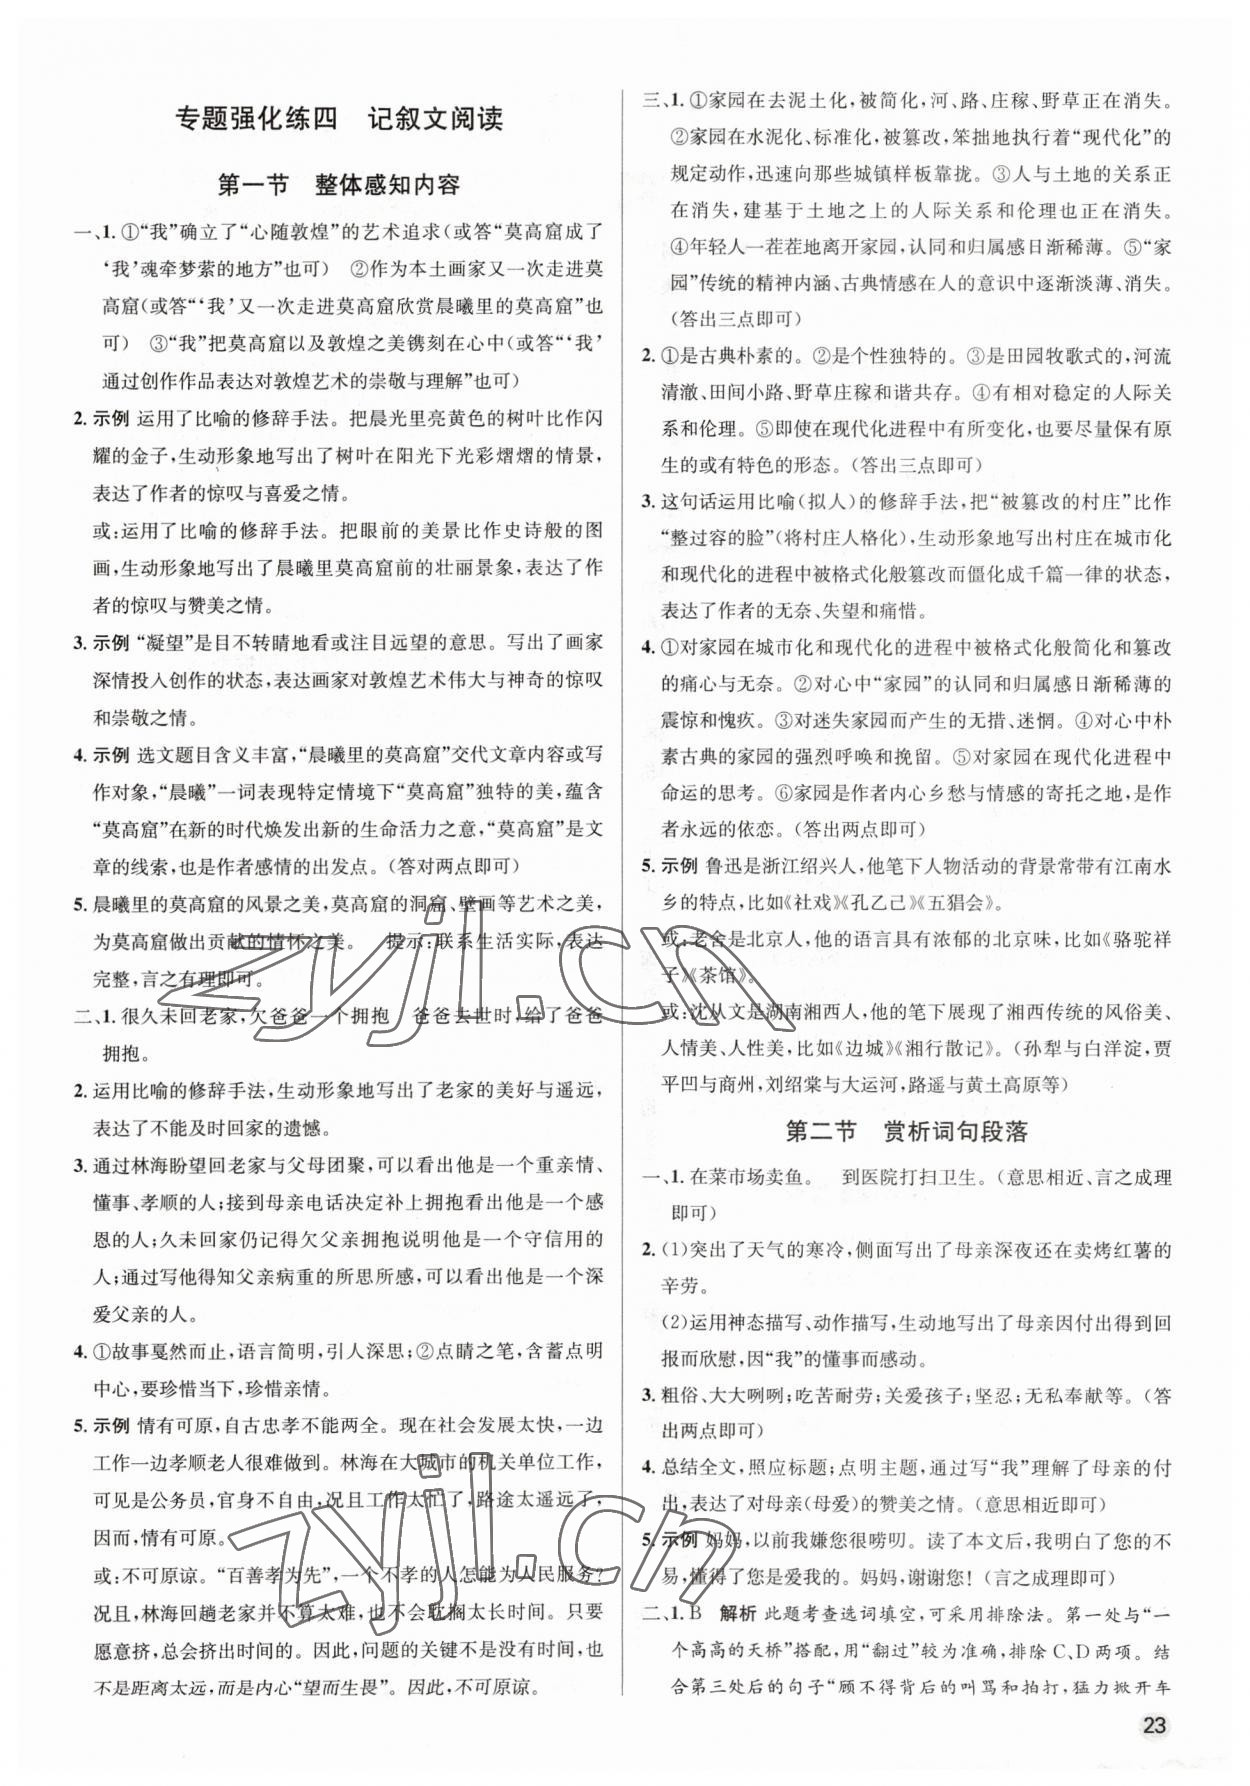 专题强化练四　记叙文阅读
第一节　整体感知内容
一、1. ①“我”确立了“心随敦煌”的艺术追求(或答“莫高窟成了
‘我’魂牵梦萦的地方”也可)　②作为本土画家又一次走进莫
高窟(或答“‘我’又一次走进莫高窟欣赏晨曦里的莫高窟”也
可)　③“我”把莫高窟以及敦煌之美镌刻在心中(或答“‘我’
通过创作作品表达对敦煌艺术的崇敬与理解”也可)
2. 示例 运用了比喻的修辞手法。把晨光里亮黄色的树叶比作闪
耀的金子,生动形象地写出了树叶在阳光下光彩熠熠的情景,
表达了作者的惊叹与喜爱之情。
或:运用了比喻的修辞手法。把眼前的美景比作史诗般的图
画,生动形象地写出了晨曦里莫高窟前的壮丽景象,表达了作
者的惊叹与赞美之情。
3. 示例 “凝望”是目不转睛地看或注目远望的意思。写出了画家
深情投入创作的状态,表达画家对敦煌艺术伟大与神奇的惊叹
和崇敬之情。
4. 示例 选文题目含义丰富,“晨曦里的莫高窟”交代文章内容或写
作对象,“晨曦”一词表现特定情境下“莫高窟”独特的美,蕴含
“莫高窟”在新的时代焕发出新的生命活力之意,“莫高窟”是文
章的线索,也是作者感情的出发点。(答对两点即可)
5. 晨曦里的莫高窟的风景之美,莫高窟的洞窟、壁画等艺术之美,
为莫高窟做出贡献的情怀之美。　提示:联系生活实际,表达
完整,言之有理即可。
二、1. 很久未回老家,欠爸爸一个拥抱　爸爸去世时,给了爸爸
拥抱。
2. 运用比喻的修辞手法,生动形象地写出了老家的美好与遥远,
表达了不能及时回家的遗憾。
3. 通过林海盼望回老家与父母团聚,可以看出他是一个重亲情、
懂事、孝顺的人;接到母亲电话决定补上拥抱看出他是一个感
恩的人;久未回家仍记得欠父亲拥抱说明他是一个守信用的
人;通过写他得知父亲病重的所思所感,可以看出他是一个深
爱父亲的人。
4. ①故事戛然而止,语言简明,引人深思;②点睛之笔,含蓄点明
中心,要珍惜当下,珍惜亲情。
5. 示例 情有可原,自古忠孝不能两全。现在社会发展太快,一边
工作一边孝顺老人很难做到。林海在大城市的机关单位工作,
可见是公务员,官身不自由,况且工作太忙了,路途太遥远了,
因而,情有可原。
或:不可原谅。“百善孝为先”,一个不孝的人怎能为人民服务?
况且,林海回趟老家并不算太难,也不会耽搁太长时间。只要
愿意挤,总会挤出时间的。因此,问题的关键不是没有时间,也
不是距离太远,而是内心“望而生畏”。因此,不可原谅。
三、1. ①家园在去泥土化,被简化,河、路、庄稼、野草正在消失。
②家园在水泥化、标准化,被篡改,笨拙地执行着“现代化”的
规定动作,迅速向那些城镇样板靠拢。③人与土地的关系正
在消失,建基于土地之上的人际关系和伦理也正在消失。
④年轻人一茬茬地离开家园,认同和归属感日渐稀薄。⑤“家
园”传统的精神内涵、古典情感在人的意识中逐渐淡薄、消失。
(答出三点即可)
2. ①是古典朴素的。②是个性独特的。③是田园牧歌式的,河流
清澈、田间小路、野草庄稼和谐共存。④有相对稳定的人际关
系和伦理。⑤即使在现代化进程中有所变化,也要尽量保有原
生的或有特色的形态。(答出三点即可)
3. 这句话运用比喻(拟人)的修辞手法,把“被篡改的村庄”比作
“整过容的脸”(将村庄人格化),生动形象地写出村庄在城市化
和现代化的进程中被格式化般篡改而僵化成千篇一律的状态,
表达了作者的无奈、失望和痛惜。
4. ①对家园在城市化和现代化的进程中被格式化般简化和篡改
的痛心与无奈。②对心中“家园”的认同和归属感日渐稀薄的
震惊和愧疚。③对迷失家园而产生的无措、迷惘。④对心中朴
素古典的家园的强烈呼唤和挽留。⑤对家园在现代化进程中
命运的思考。⑥家园是作者内心乡愁与情感的寄托之地,是作
者永远的依恋。(答出两点即可)
5. 示例 鲁迅是浙江绍兴人,他笔下人物活动的背景常带有江南水
乡的特点,比如《社戏》《孔乙己》《五猖会》。
或:老舍是北京人,他的语言具有浓郁的北京味,比如《骆驼祥
子》《茶馆》。
或:沈从文是湖南湘西人,他的笔下展现了湘西传统的风俗美、
人情美、人性美,比如《边城》《湘行散记》。(孙犁与白洋淀,贾
平凹与商州,刘绍棠与大运河,路遥与黄土高原等)
第二节　赏析词句段落
一、1. 在菜市场卖鱼。　到医院打扫卫生。(意思相近、言之成理
即可)
2. (1)突出了天气的寒冷,侧面写出了母亲深夜还在卖烤红薯的
辛劳。
(2)运用神态描写、动作描写,生动地写出了母亲因付出得到回
报而欣慰,因“我”的懂事而感动。
3. 粗俗、大大咧咧;吃苦耐劳;关爱孩子;坚忍;无私奉献等。(答
出两点即可)
4. 总结全文,照应标题;点明主题,通过写“我”理解了母亲的付
出,表达了对母亲(母爱)的赞美之情。(意思相近即可)
5. 示例 妈妈,以前我嫌您很唠叨。读了本文后,我明白了您的不
易,懂得了您是爱我的。妈妈,谢谢您!(言之成理即可)
二、1. B　解析 此题考查选词填空,可采用排除法。第一处与“一
个高高的天桥”搭配,用“翻过”较为准确,排除C、D两项。结
合第三处后的句子“顾不得背后的叫骂和拍打,猛力掀开车
23
zyjl.cn
zyjl.cn